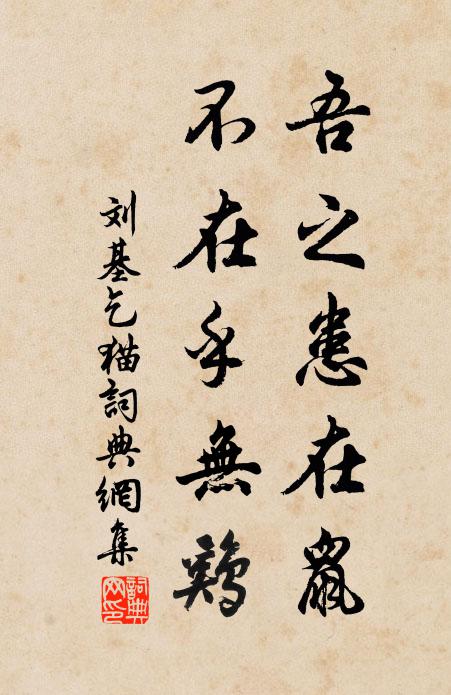 吾之患在鼠
不在乎無鷄
刘基乞猫詞典網集
詞典網印